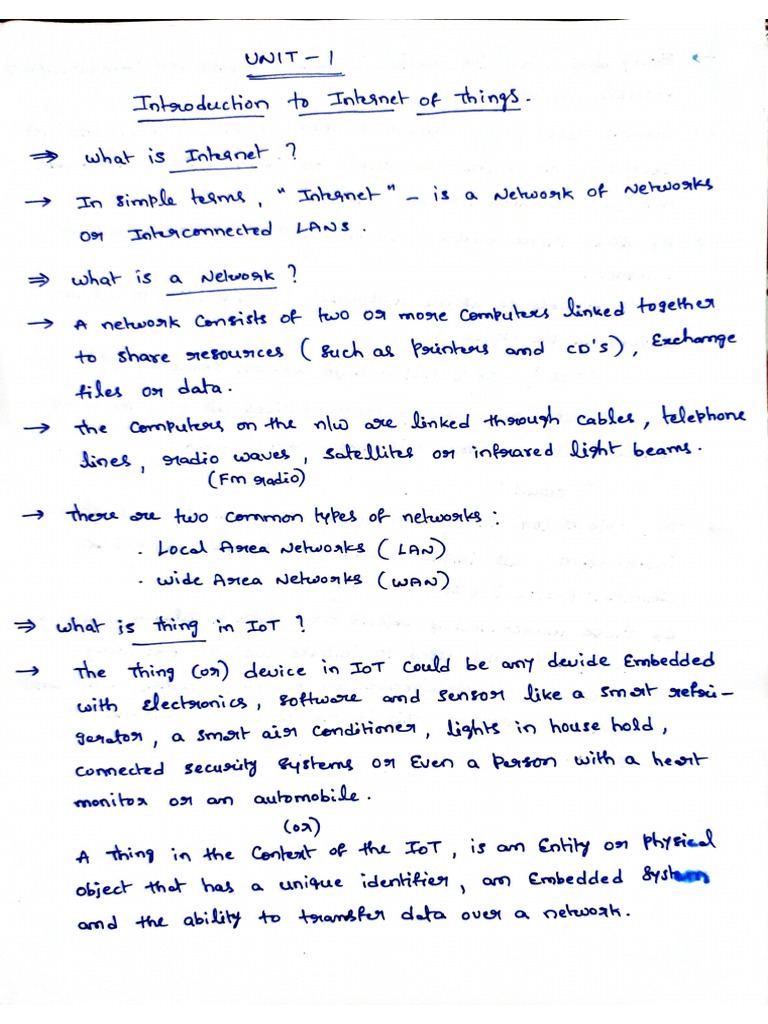 UNIT - 1
Introduction to Internet of Things.
⇒ What is Internet ?
→ In simple terms, " Internet " - is a Network of Networks
or Interconnected LANs.
⇒ What is a Network ?
→ A network consists of two or more computers linked together
to share resources ( such as printers and CD's ), Exchange
files or data.
→ The computers on the n/w are linked through cables, telephone
lines, radio waves, satellites or infrared light beams.
(Fm radio)
→ There are two common types of networks :
. Local Area Networks ( LAN )
. Wide Area Networks ( WAN )
⇒ What is thing in IoT ?
→ The thing (or) device in IoT could be any devide Embedded
with electronics, software and sensor like a smart refri-
gerator, a smart air conditioner, lights in house hold,
connected security systems or Even a person with a heart
monitor or an automobile.
(or)
A thing in the context of the IoT, is an Entity or physical
object that has a unique identifier, an Embedded system
and the ability to transfer data over a network.